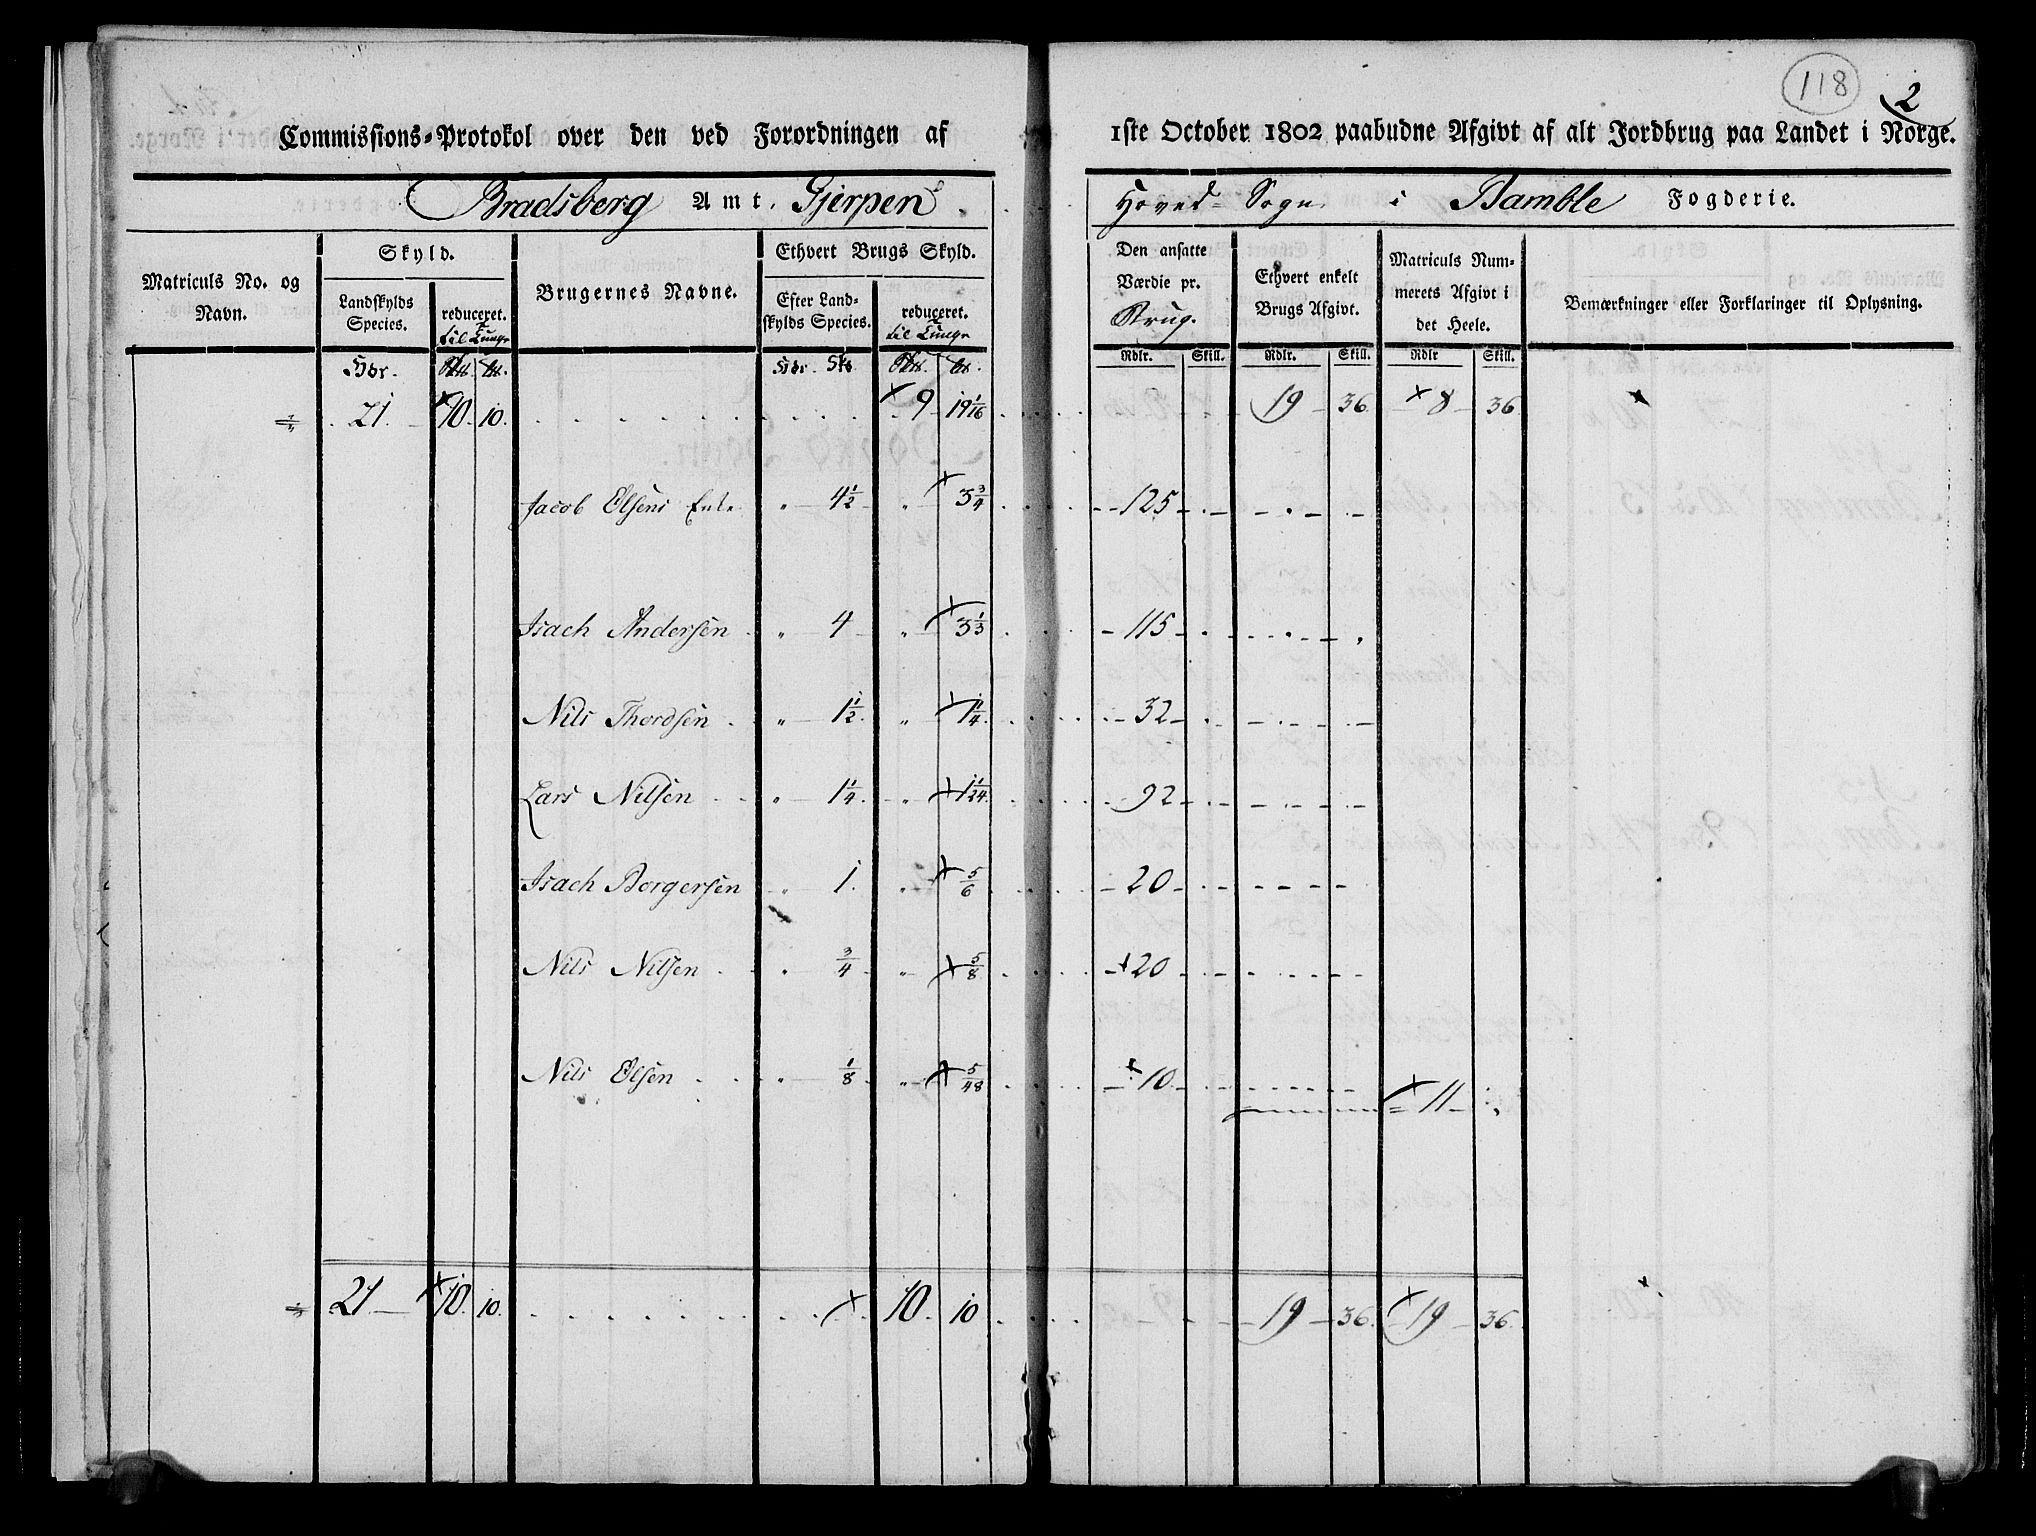 118
2
Commissions-Protokol over den ved Forordningen af 1ste October 1802 paabudne Afgivt af alt Jordbrug paa Landet i Norge.
Bradsberg Amt, Gjerpen Hoved-Sogn i Bamble Fogderie.
Matriculs No. og Navn.
Skyld.
Landskylds Species.
reduceret.
til Tunge
Brugernes Navne.
Ethvert Brugs Skyld.
Efter Landskylds Species.
reduceret.
til Tunge
Den ansatte Værdie pr.
Brug.
Ethvert enkelt Brugs Afgivt.
Matriculs Nummerets Afgivt i det Heele.
Bemærkninger eller Forklaringer til Oplysning.
Rdlr. Skill. Rdlr. Skill. Rdlr Skill.
21. 10. 10. 9 19 1/16 19 36. 8 36
Jacob Olsens Enke " 4 1/2 " 3 3/4 125
Isach Andersen " 4 " 3 1/3 115
Nils Thordsen " 1 1/2 " 1 1/4 32
Lars Nilsen " 1 1/4 " 1 1/24 92
Isach Borgersen " 1. " 5/6 20
Nils Nilsen " 3/4 " 5/8 20
Nils Olsen " 1/8 " 5/48 10
11
21 10. 10. 10. 10 19 36. 19 36.